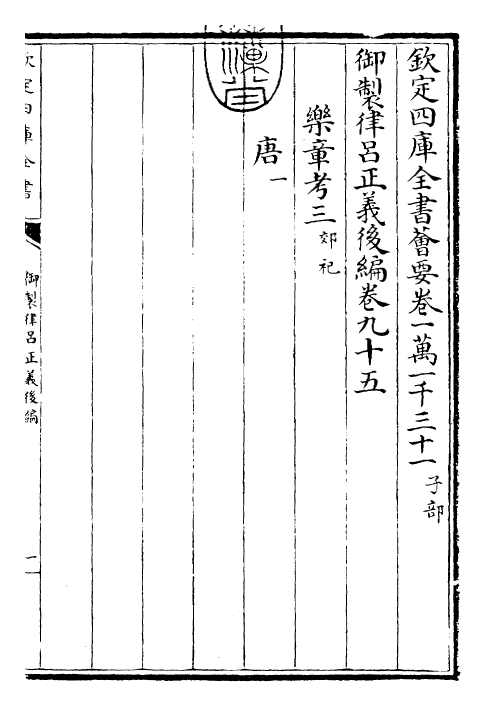 欽定四庫全書薈要卷一萬一千三十一子部
御製律呂正義後編卷九十五
樂章考三郊祀
唐一
欽定四庫全書
御製律呂正義後編
一